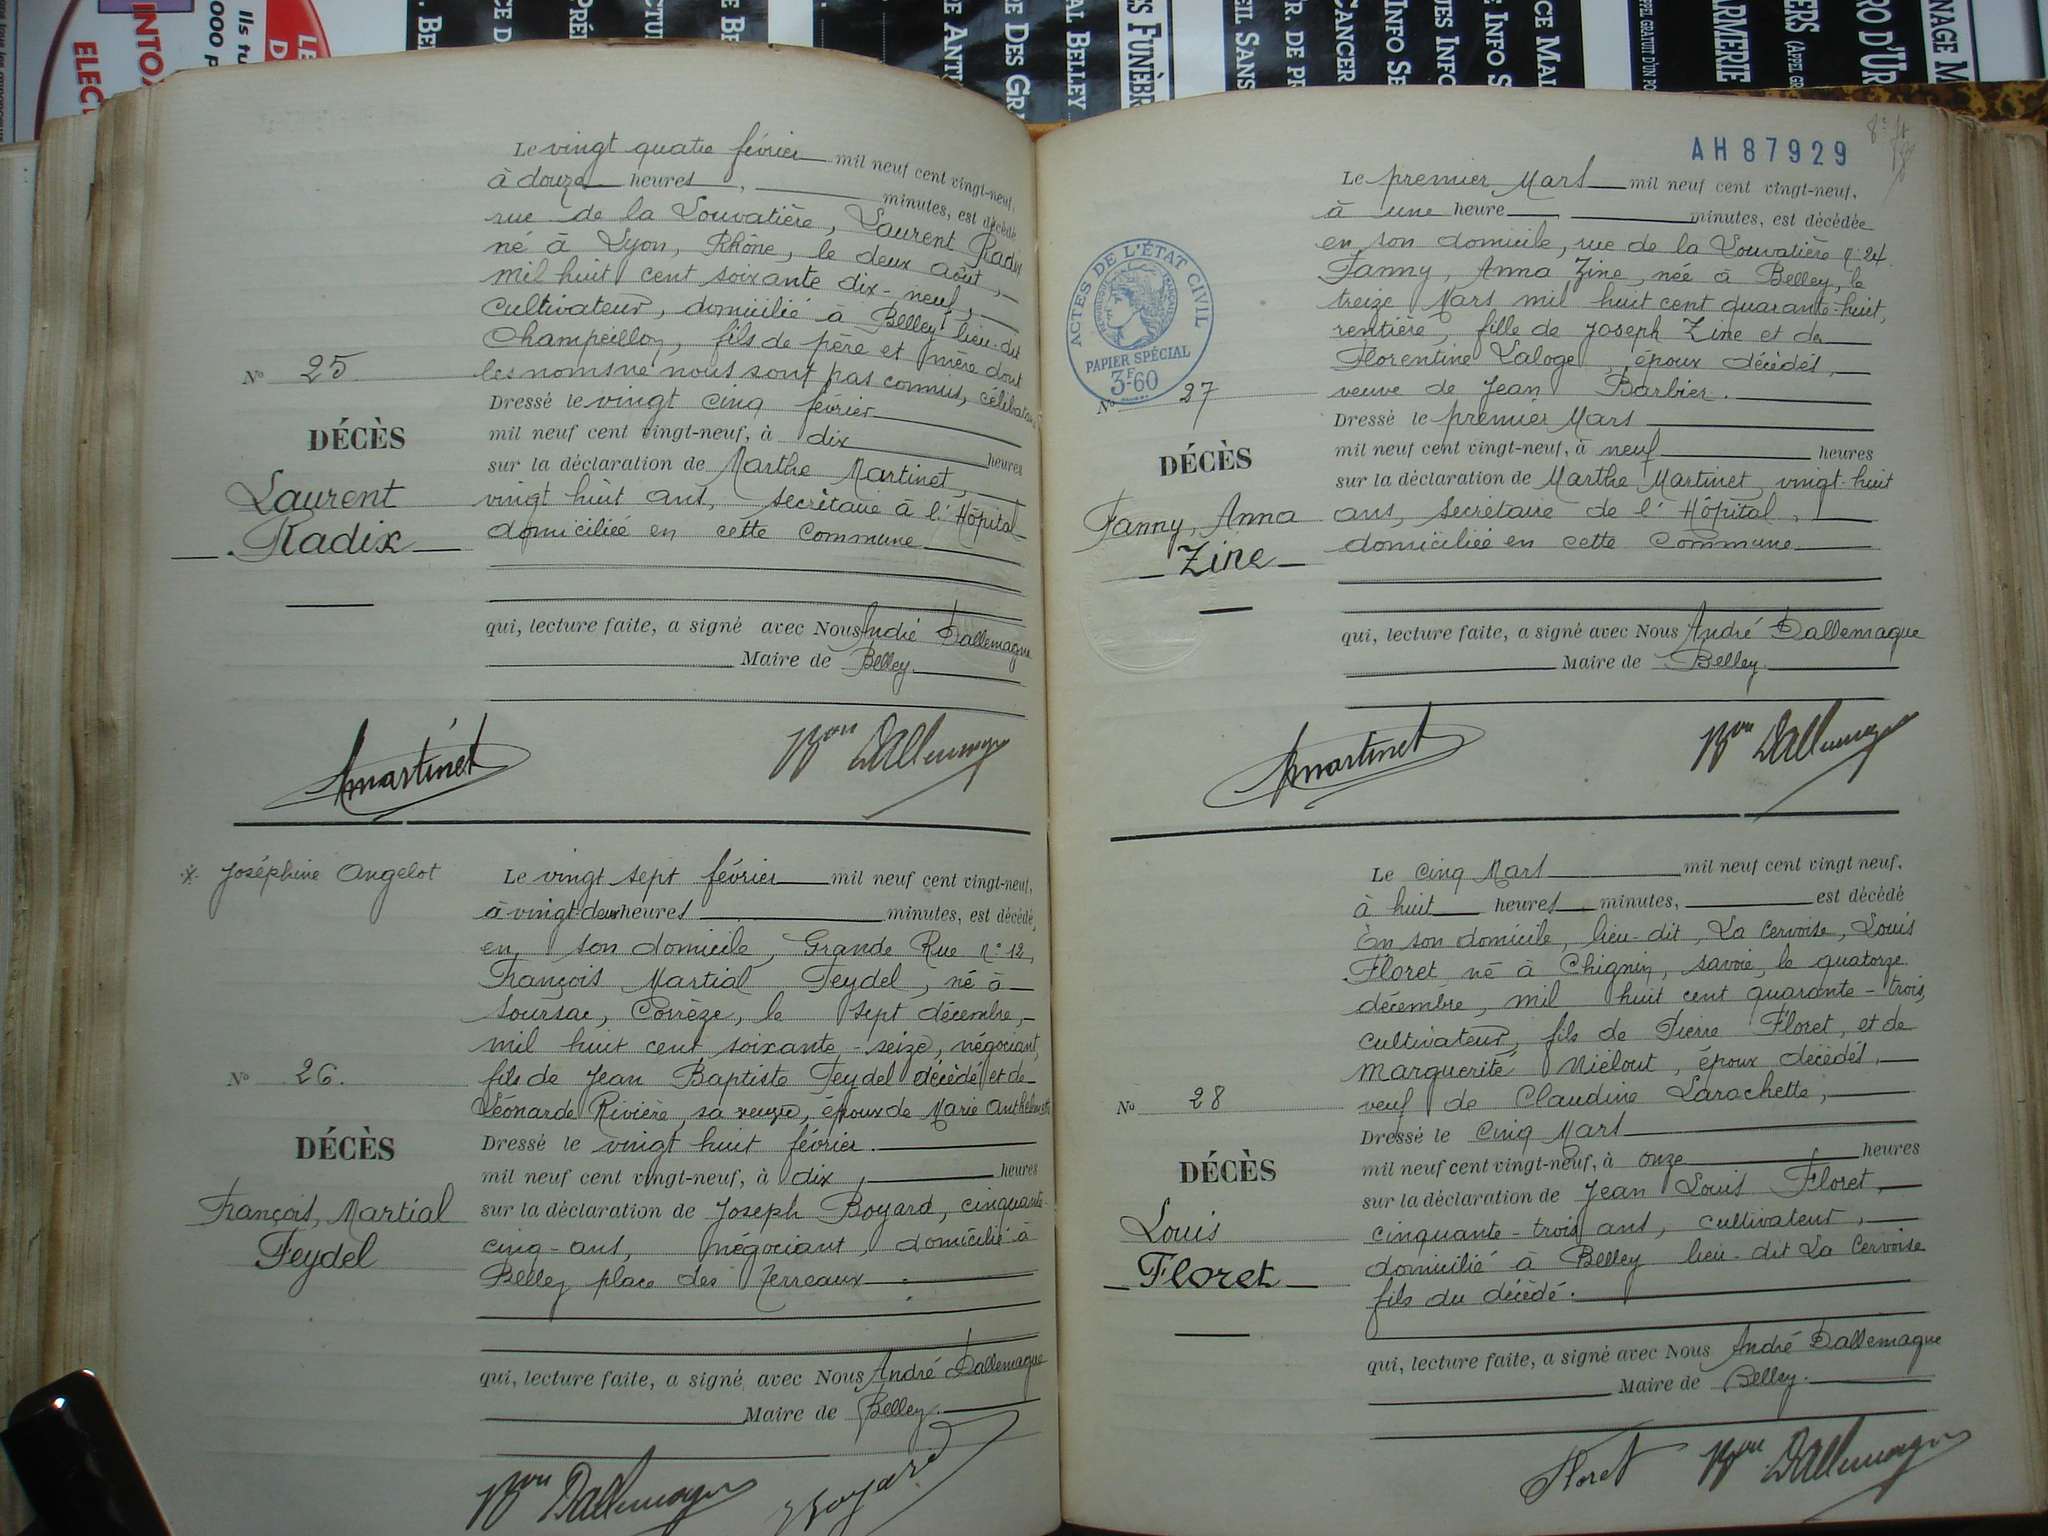 Le vingt quatre février mil neuf cent vingt-neuf,
à douze heures, minutes, est décédé
rue de la Louvatière, Laurent Radix
né à Lyon, Rhône, le deux août,
mil huit cent soixante dix-neuf,
cultivateur, domicilié à Belley lieu-dit
Champeillon, fils de père et mère dont
les noms ne nous sont pas connus, célibataire
No 25
Dressé le vingt cinq février
DÉCÈS
mil neuf cent vingt-neuf, à dix heures
sur la déclaration de Marthe Martinet,
Laurent
vingt huit ans, secrétaire à l'Hôpital
Radix
domiciliée en cette commune
qui, lecture faite, a signé avec Nous André Dallemagne
Maire de Belley.
Martinet
Bon Dallemagne
* Joséphine Angelot
Le vingt sept février mil neuf cent vingt-neuf,
à vingt-deux heures minutes, est décédé,
en son domicile, Grande Rue n° 12,
François Martial Feydel, né à
Soursac, Corrèze, le sept décembre,
mil huit cent soixante-seize, négociant,
No 26.
fils de Jean Baptiste Feydel décédé et de
Léonarde Rivière, sa veuve, époux de Marie Anthelmette
DÉCÈS
Dressé le vingt huit février.
mil neuf cent vingt-neuf, à dix, heures
François, Martial
Feydel
sur la déclaration de Joseph Boyard, cinquante
cinq-ans, négociant, domicilié à
Belley place des Terreaux
qui, lecture faite, a signé avec Nous André Dallemagne
Maire de Belley.
Bon Dallemagne
Boyard
AH87929
Le premier Mars mil neuf cent vingt-neuf,
à une heure minutes, est décédée
en son domicile, rue de la Louvatière n° 24.
Fanny, Anna Zine, née à Belley, le
treize Mars mil huit cent quarante-huit,
rentière, fille de Joseph Zine et de
Florentine Laloge, époux décédés,
veuve de Jean Barbier.
ACTES DE L'ÉTAT CIVIL
RÉPUBLIQUE FRANÇAISE
PAPIER SPÉCIAL
3F60
No 27
Dressé le premier Mars
DÉCÈS
mil neuf cent vingt-neuf, à neuf heures
sur la déclaration de Marthe Martinet, vingt-huit
Fanny, Anna
Zine
ans, secrétaire de l'Hôpital,
domiciliée en cette Commune
qui, lecture faite, a signé avec Nous André Dallemagne
Maire de Belley.
Martinet
Bon Dallemagne
Le cinq Mars mil neuf cent vingt neuf,
à huit heures minutes, est décédé
En son domicile, lieu-dit, La Cervoise, Louis
Floret né à Chignin, savoie, le quatorze
décembre, mil huit cent quarante-trois,
cultivateur, fils de Pierre Floret, et de
Marguerite Miélout, époux décédés,
No 28
veuf de Claudine Larochette,
Dressé le cinq Mars
DÉCÈS
mil neuf cent vingt-neuf, à onze heures
sur la déclaration de Jean Louis Floret,
Louis
Floret
cinquante-trois ans, cultivateur,
domicilié à Belley lieu-dit La Cervoise
fils du décédé.
qui, lecture faite, a signé avec Nous André Dallemagne
Maire de Belley.
Floret
Bon Dallemagne